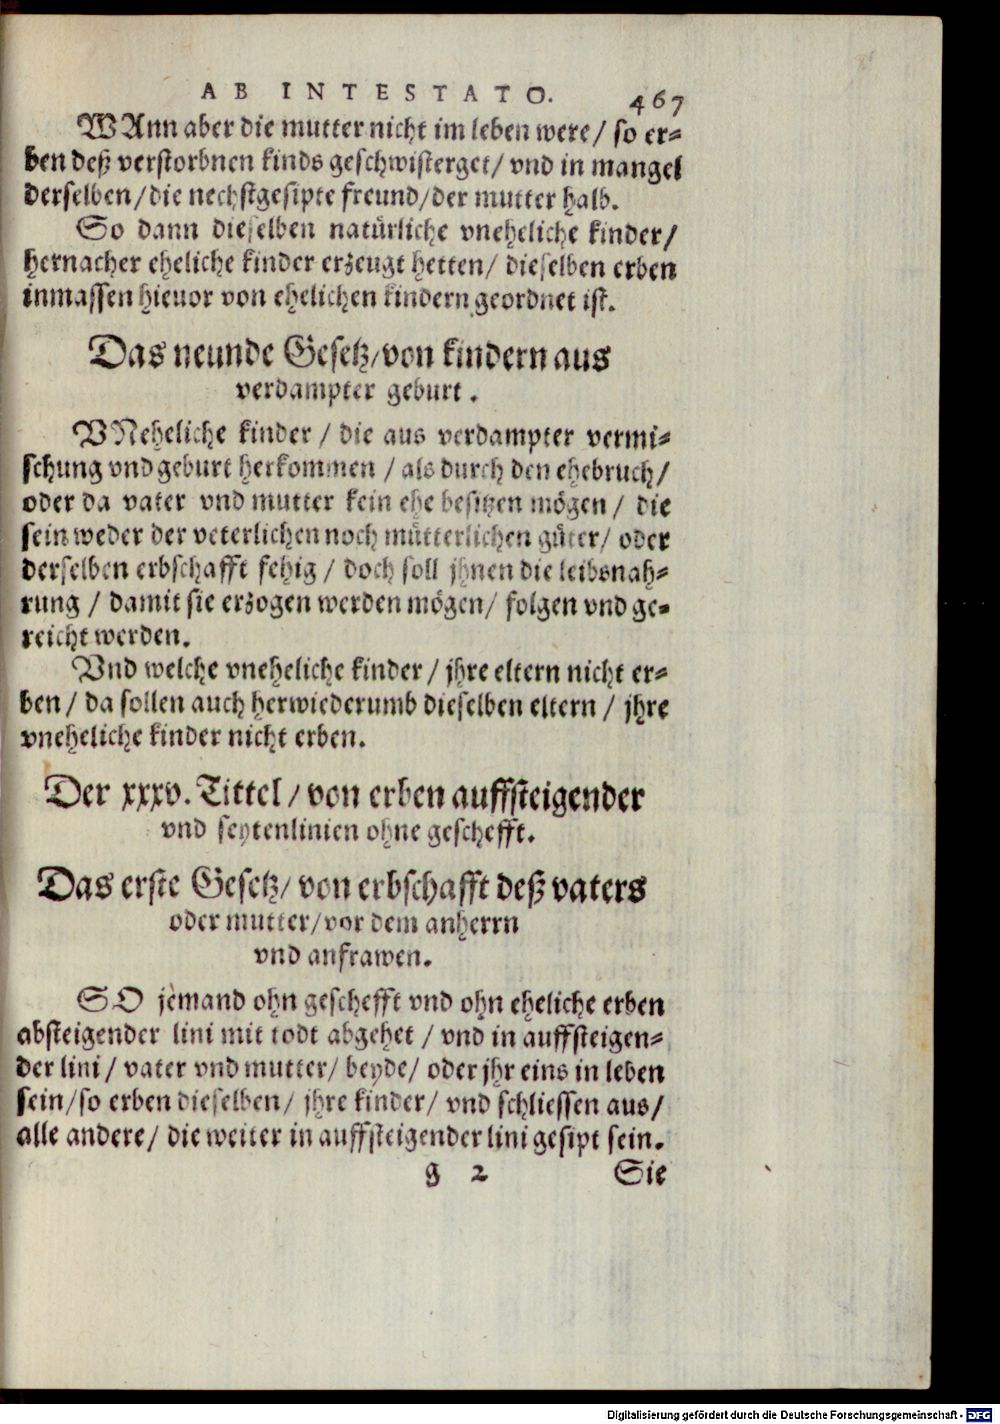 AB INTESTATO. 467
WAnn aber die mutter nicht im leben were / so er-
ben deß verstorbnen kinds geschwisterget / vnd in mangel
derselben / die nechstgesipte freund / der mutter halb.
So dann dieselben natürliche vneheliche kinder /
hernacher eheliche kinder erzeugt hetten / dieselben erben
inmassen hieuor von ehelichen kindern geordnet ist.
Das neunde Gesetz / von kindern aus
verdampter geburt.
VNeheliche kinder / die aus verdampter vermi-
schung vnd geburt herkommen / als durch den ehebruch /
oder da vater vnd mutter kein ehe besitzen mögen / die
sein weder der veterlichen noch mütterlichen güter / oder
derselben erbschafft fehig / doch soll jhnen die leibsnah-
rung / damit sie erzogen werden mögen / folgen vnd ge-
reicht werden.
Vnd welche vneheliche kinder / jhre eltern nicht er-
ben / da sollen auch herwiederumb dieselben eltern / jhre
vneheliche kinder nicht erben.
Der xxxv. Tittel / von erben auffsteigender
vnd seytenlinien ohne geschefft.
Das erste Gesetz / von erbschafft deß vaters
oder mutter / vor dem anherrn
vnd anfrawen.
SO jemand ohn geschefft vnd ohn eheliche erben
absteigender lini mit todt abgehet / vnd in auffsteigen-
der lini / vater vnd mutter / beyde / oder jhr eins in leben
sein / so erben dieselben / jhre kinder / vnd schliessen aus /
alle andere / die weiter in auffsteigender lini gesipt sein.
g 2 Sie
Digitalisierung gefördert durch die Deutsche Forschungsgemeinschaft - DFG